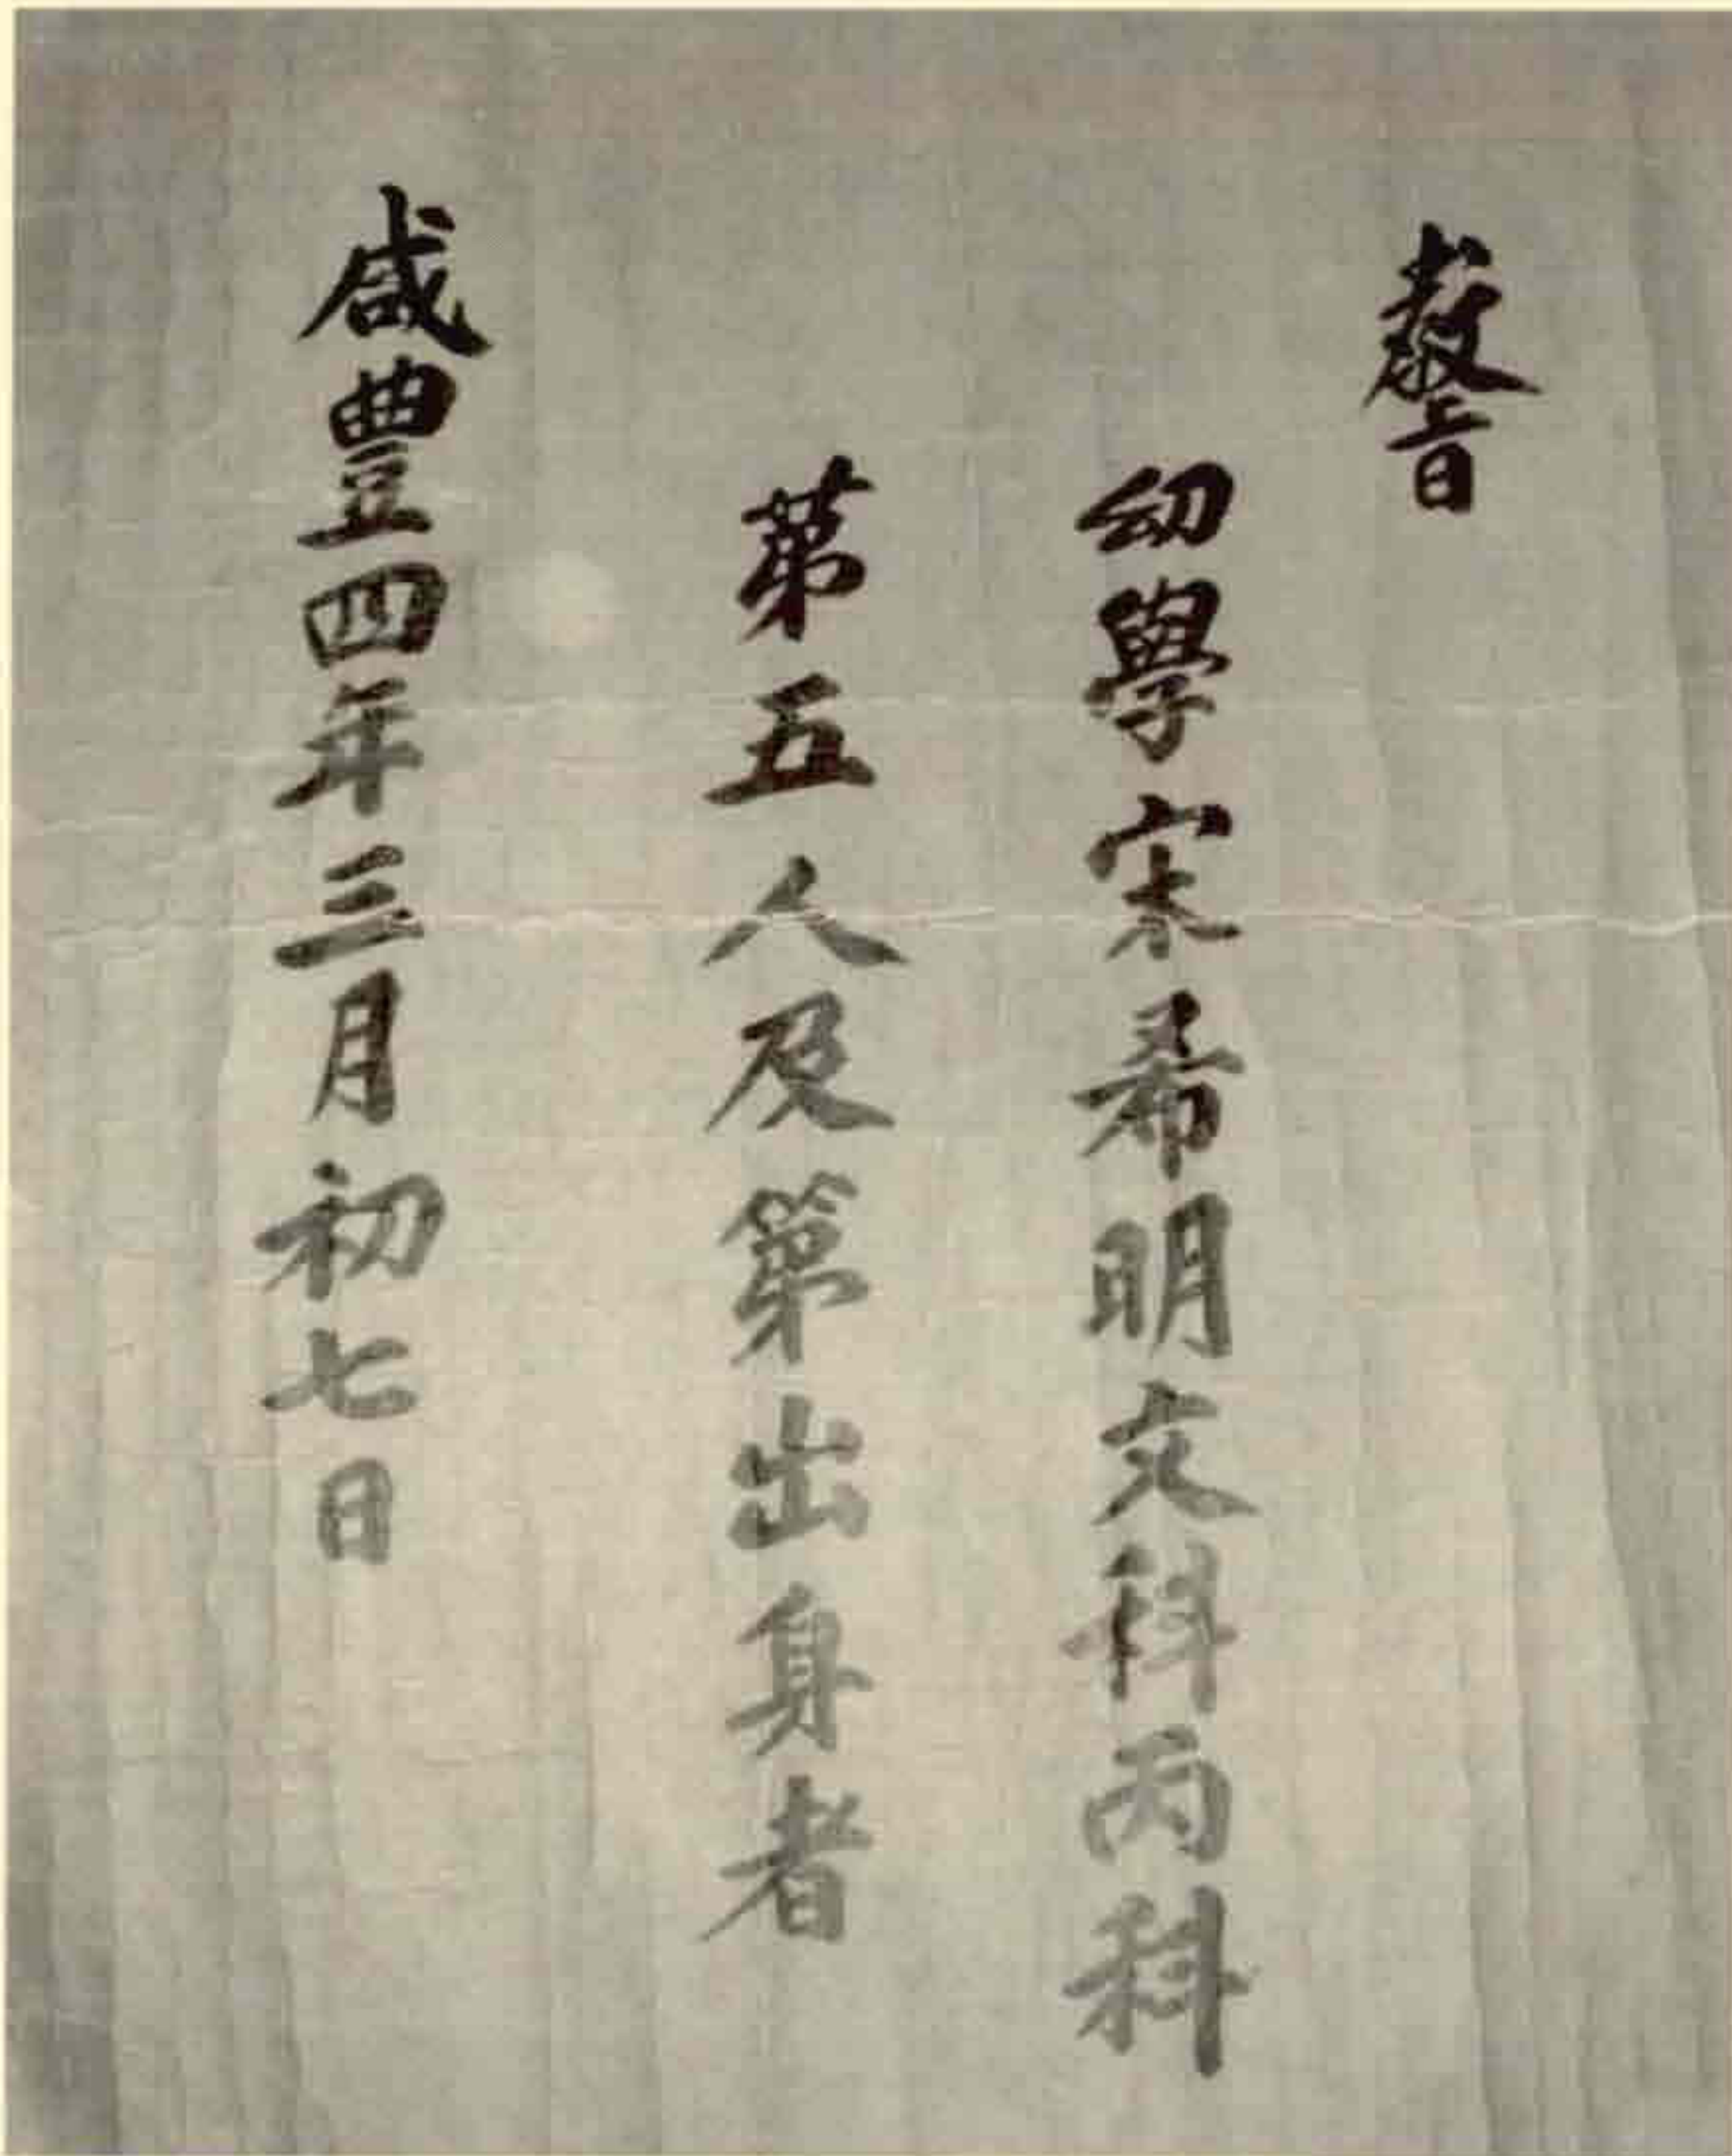 敎旨
幼學宋希明文科丙科
第五人及第出身者
咸豊四年三月初七日